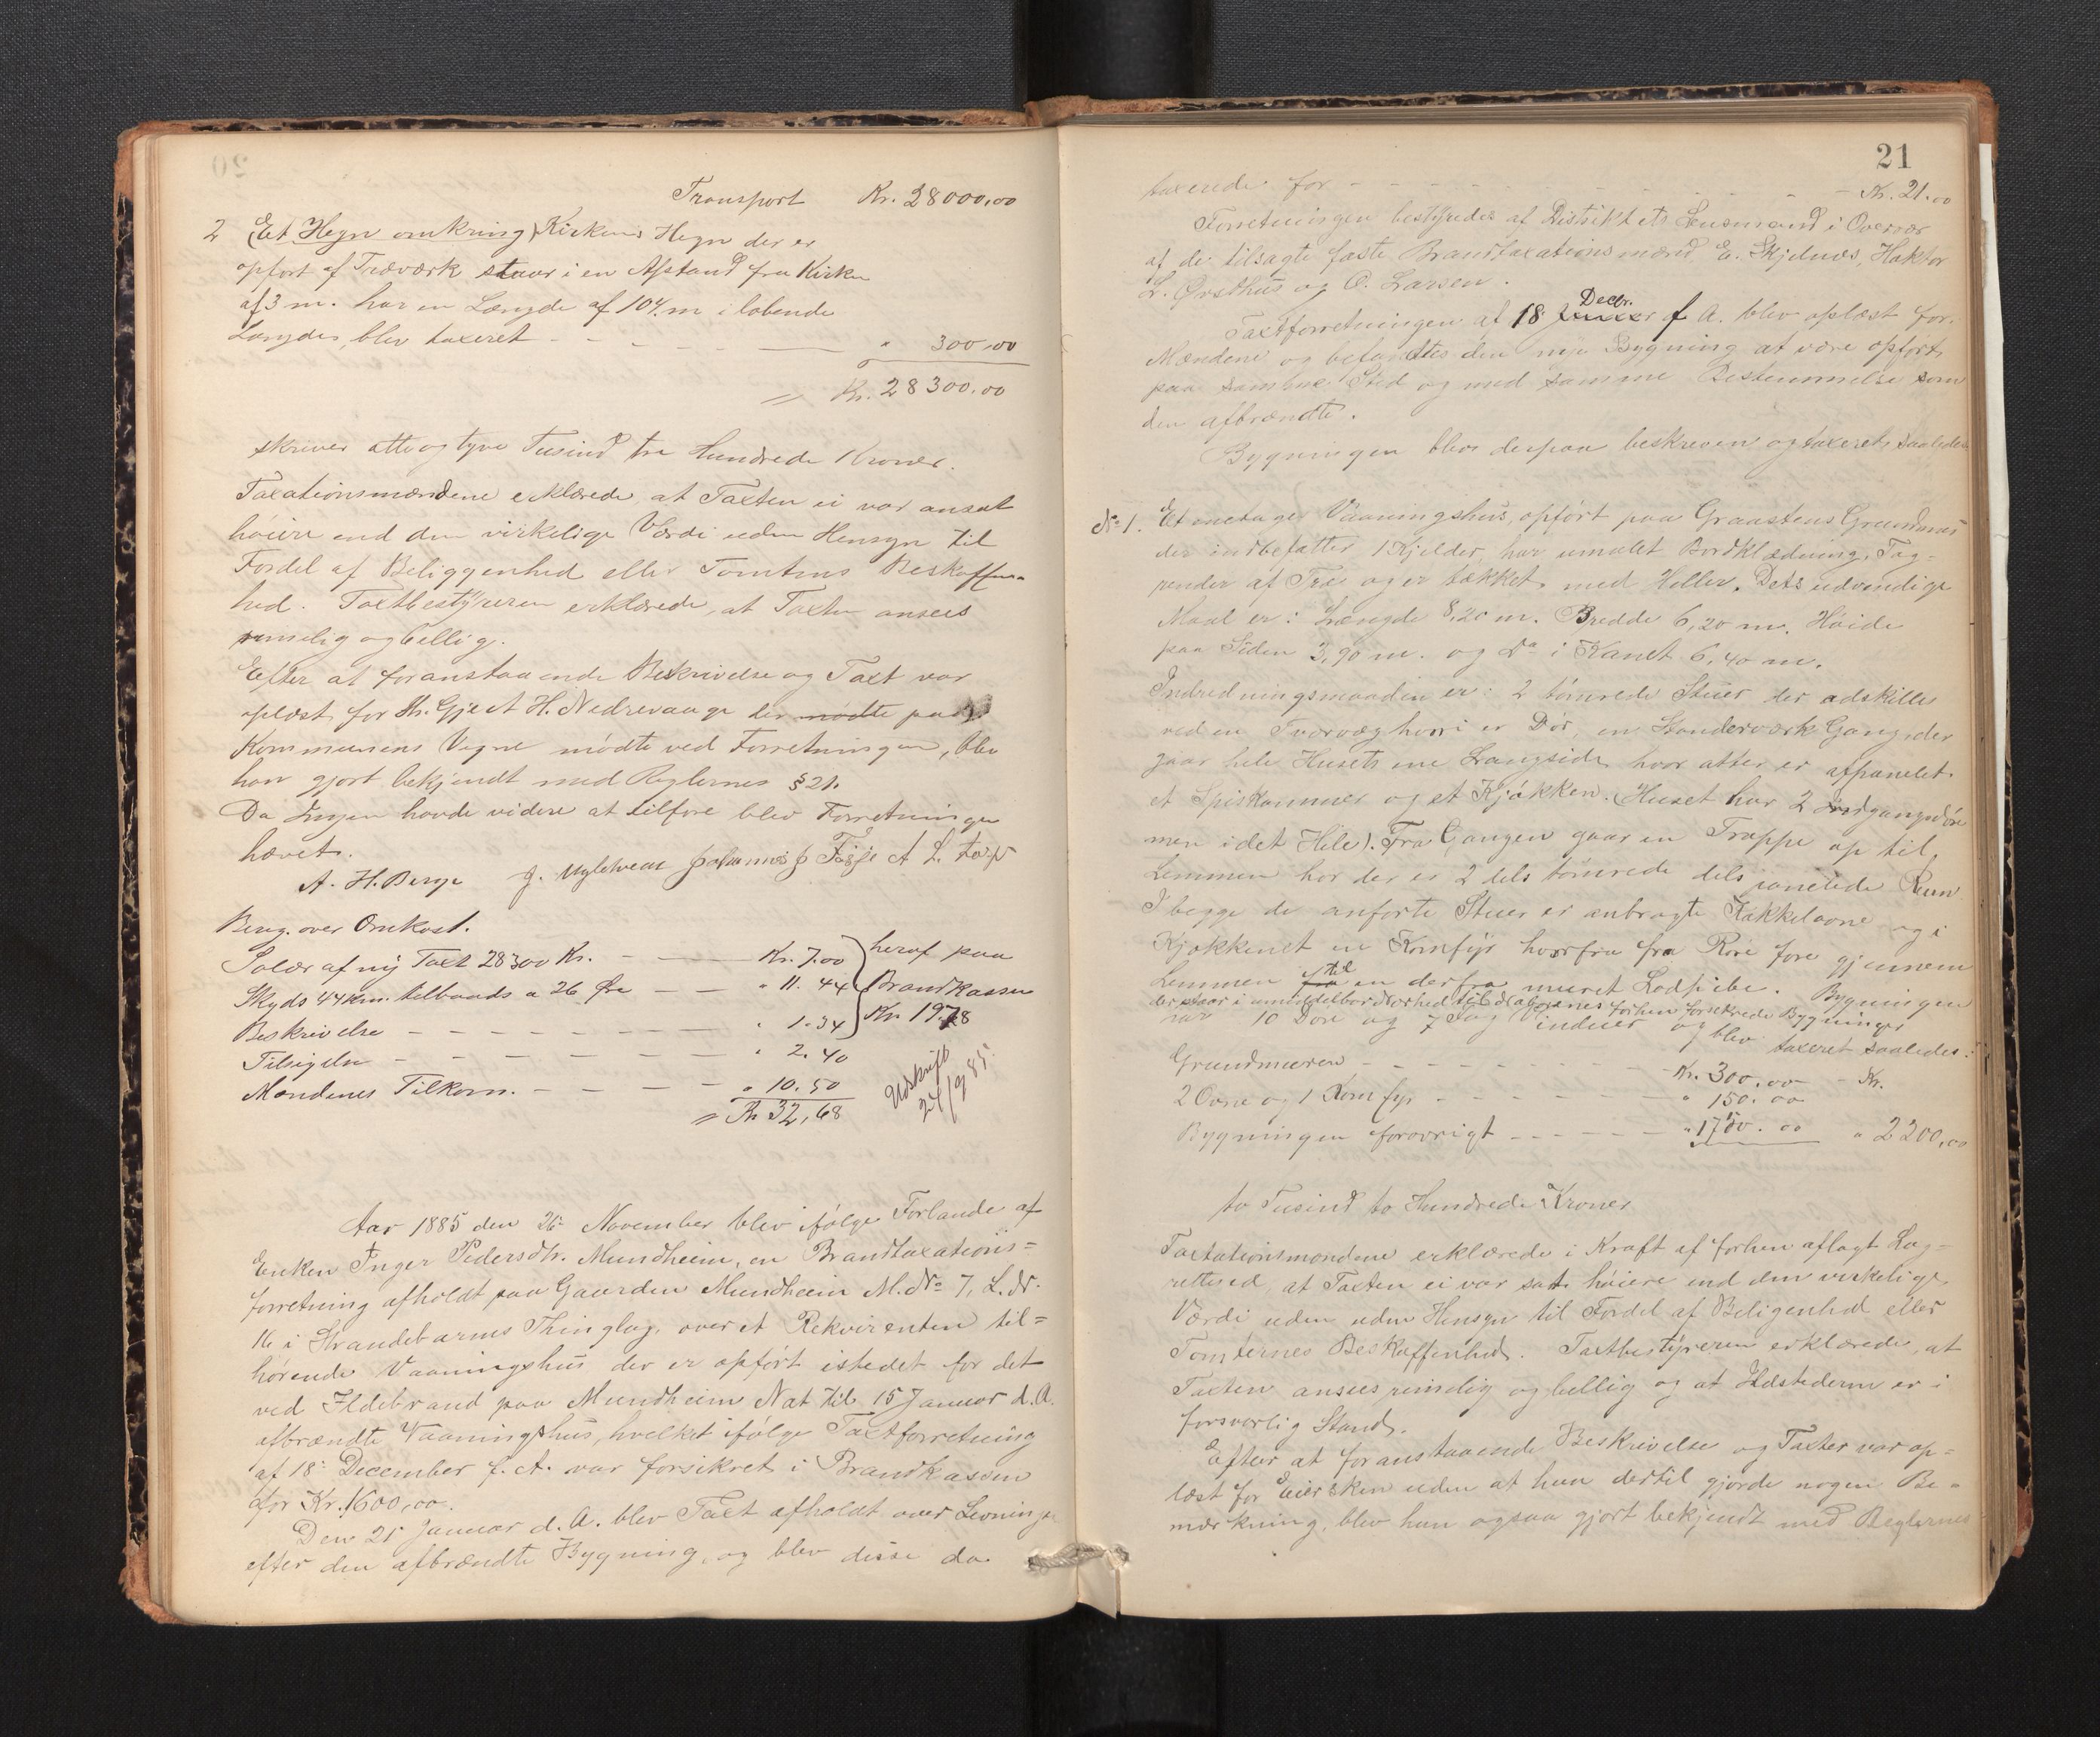 Transport Kr. 28000,00
2 (Et Hegn omkring) Kirkens Hegn der er
opført af Træværk staar i en Afstand fra Kirken
af 3 m. har en Længde af 104 m i løbende
Længder, blev taxeret - - - - - " 300,00
Kr. 28300,00
skriver otte og tyve Tusind tre Hundrede Kroner.
Taxationsmændene erklærede, at Taxten ei var ansat
høiere end den virkelige Værdi uden Hensyn til
Fordel af Beliggenhed eller Tomtens Beskaffen-
hed. Taxtbestyreren erklærede, at Taxten ansees
rimelig og billig.
Efter at foranstaaende Beskrivelse og Taxt var
oplæst for Hr. Gjert H. Nedrevaage der mødte paa
Kommunens Vegne mødte ved Forretningen, blev
han gjort bekjendt med Reglernes § 21.
Da Ingen havde videre at tilføre blev Forretningen
hævet.
A. H. Berge J. Johannes J
Bereg. over Omkost.
Salær af ny Taxt 28300 Kr. - - Kr. 7.00 heraf paa
Skyds 44 Km. tilbaads a 26 Øre - - " 11.44 Brandkassen
Beskrivelse - - - - - " 1.34 Kr. 19.78
Tilsigelse - - - - - " 2.40
Mændenes Tilkom. - - - - " 10.50
Kr 32,68
Udskrift
24/9 85.
Aar 1885 den 26 November blev ifølge Forlangende af
Enken Inger Pedersdtr. Mundheim, en Brandtaxations=
forretning afholdt paa Gaarden Mundheim M. No 7, L. Nr.
16 i Strandebarms Thinglag, over et Rekvirenten til=
hørende Vaaningshus der er opført istedet for det
ved Ildebrand paa Mundheim Nat til 15 Januar d. A.
afbrændte Vaaningshus, hvilket ifølge Taxtforretning
af 18 December f. A. var forsikret i Brandkassen
for Kr. 1600,00.
Den 21 Januar d. A. blev Taxt afholdt over Levninger
efter den afbrændte Bygning, og blev disse da
21
taxerede for - - - - - Kr. 21.00
Forretningen bestyredes af Distriktets Lensmand i Overvær
af de tilsagte faste Brandtaxationsmænd E. Skjelnæs, Haktor
L. Ørsthus og O. Larsen.
Decbr.
Taxtforretningen af 18 f A. blev oplæst for
Mændene og befandtes den nye Bygning at være opført
paa samme Sted og med samme Bestemmelse som
den afbrændte.
Bygningen blev derpaa beskreven og taxeret saaledes
No 1. Et enetages Vaaningshus, opført paa Graastens Grundmur
der indbefatter 1 Kjelder, har umalet Bordklædning, Tag-
render af Træ og er tækket med Heller. Dets udvendige
Maal er: Længde 8,20 m. Bredde 6,20 m. Høide
paa Siden 3,90 m. og do i Kanet 6,40 m.
Indredningsmaaden er: 2 tømrede Stuer der adskilles
ved en Tvervæg hvori er Dør, en Stenderværk Gang der
gaar hele Husets ene Langside hvor atter er afpanelet
et Spiskammer og et Kjøkken. (Huset har 2 Indgangsdøre
men i det Hele). Fra Gangen gaar en Trappe op til
Lemmen hor der er 2 dels tømrede dels panelede Rum
I begge de anførte Stuer er anbragte Kakkelovne og i
Kjøkkenet en Komfyr hvorfra fra Røre føre gjennem
Lemmen til en derfra muret Ladpibe. Bygningen
der staar i umiddelbar Nærhed til Naboernes forhen forsikrede Bygninger
har 10 Døre og 7 Fag Vinduer og blev taxeret saaledes:
Grundmuren - - - - - Kr. 300.00 - Kr.
2 Ovne og 1 Komfyr - - - - - " 150.00
Bygningen forøvrigt - - - - " 1750.00 " 2200,00
to Tusind to Hundrede Kroner
Taxtationsmændene erklærede i Kraft af forhen aflagt Lag-
rettesed, at Taxten ei var sat høiere end den virkelige
Værdi uden uden Hensyn til Fordel af Beligenhed eller
Tomternes Beskaffenhed. Taxtbestyreren erklærede, at
Taxten ansees rimelig og billig og at Ildstederne er i
forsvarlig Stand.
Efter at foranstaaende Beskrivelse og Taxter var op=
læst for Eiersken uden at hun dertil gjorde nogen Be-
mærkning, blev hun ogsaa gjort bekjendt med Reglernes